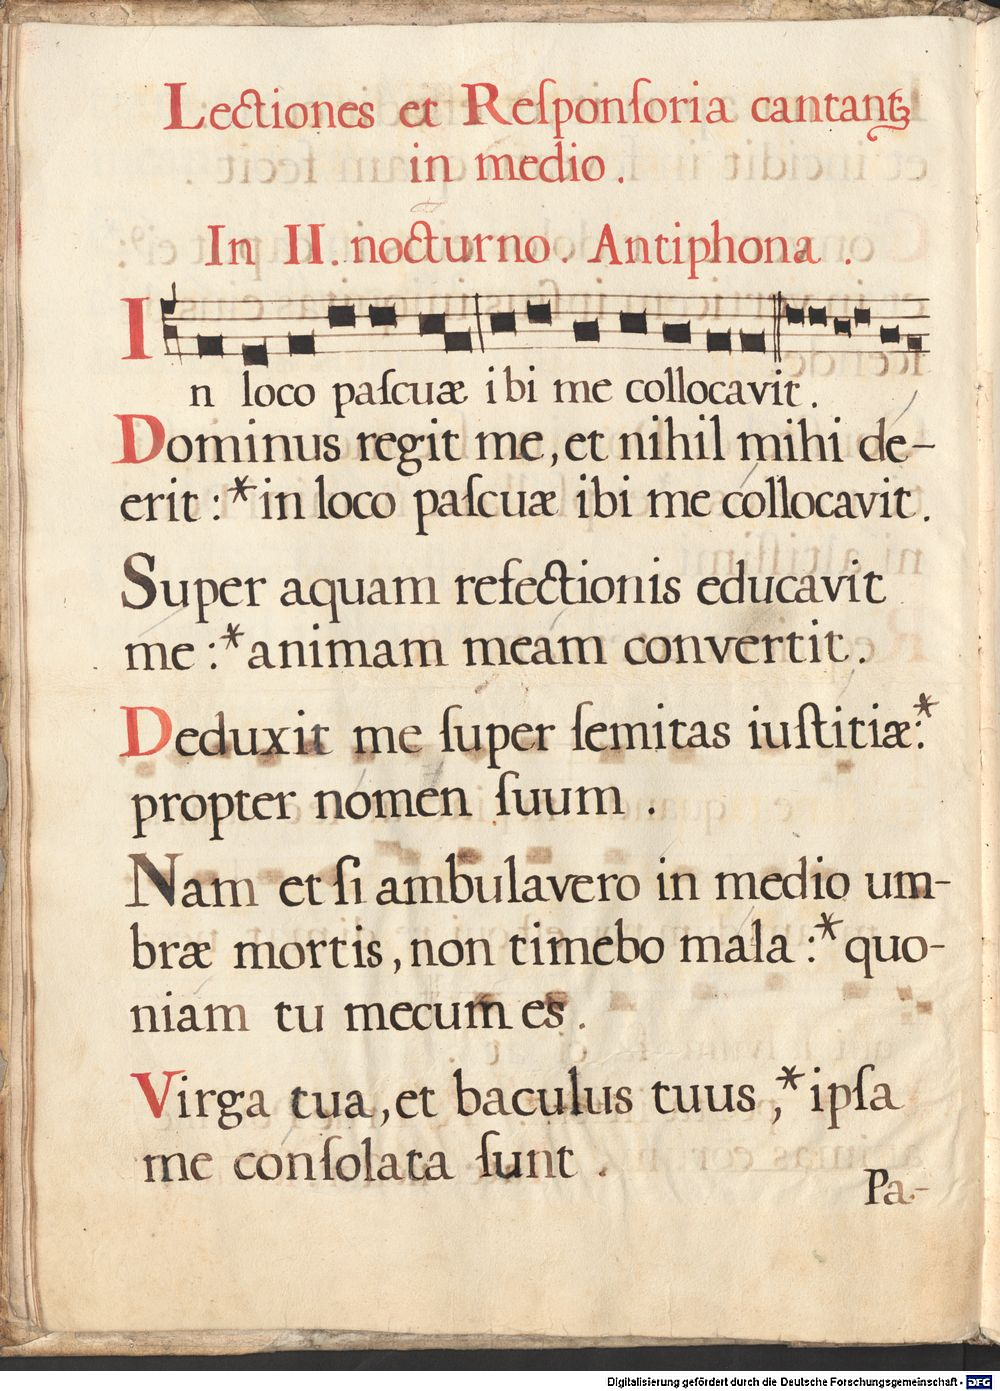 Lectiones et Reſponſoria cantantꝫ
in medio.
In II. nocturno. Antiphona.
In loco paſcuæ ibi me collocavit.
Dominus regit me, et nihil mihi de-
erit :* in loco paſcuæ ibi me collocavit.
Super aquam refectionis educavit
me :* animam meam convertit.
Deduxit me ſuper ſemitas iuſtitiæ:*
propter nomen ſuum.
Nam et ſi ambulavero in medio um-
bræ mortis, non timebo mala :* quo-
niam tu mecum es.
Virga tua, et baculus tuus ,* ipſa
me conſolata ſunt.
Pa-
Digitalisierung gefördert durch die Deutsche Forschungsgemeinschaft - DFG